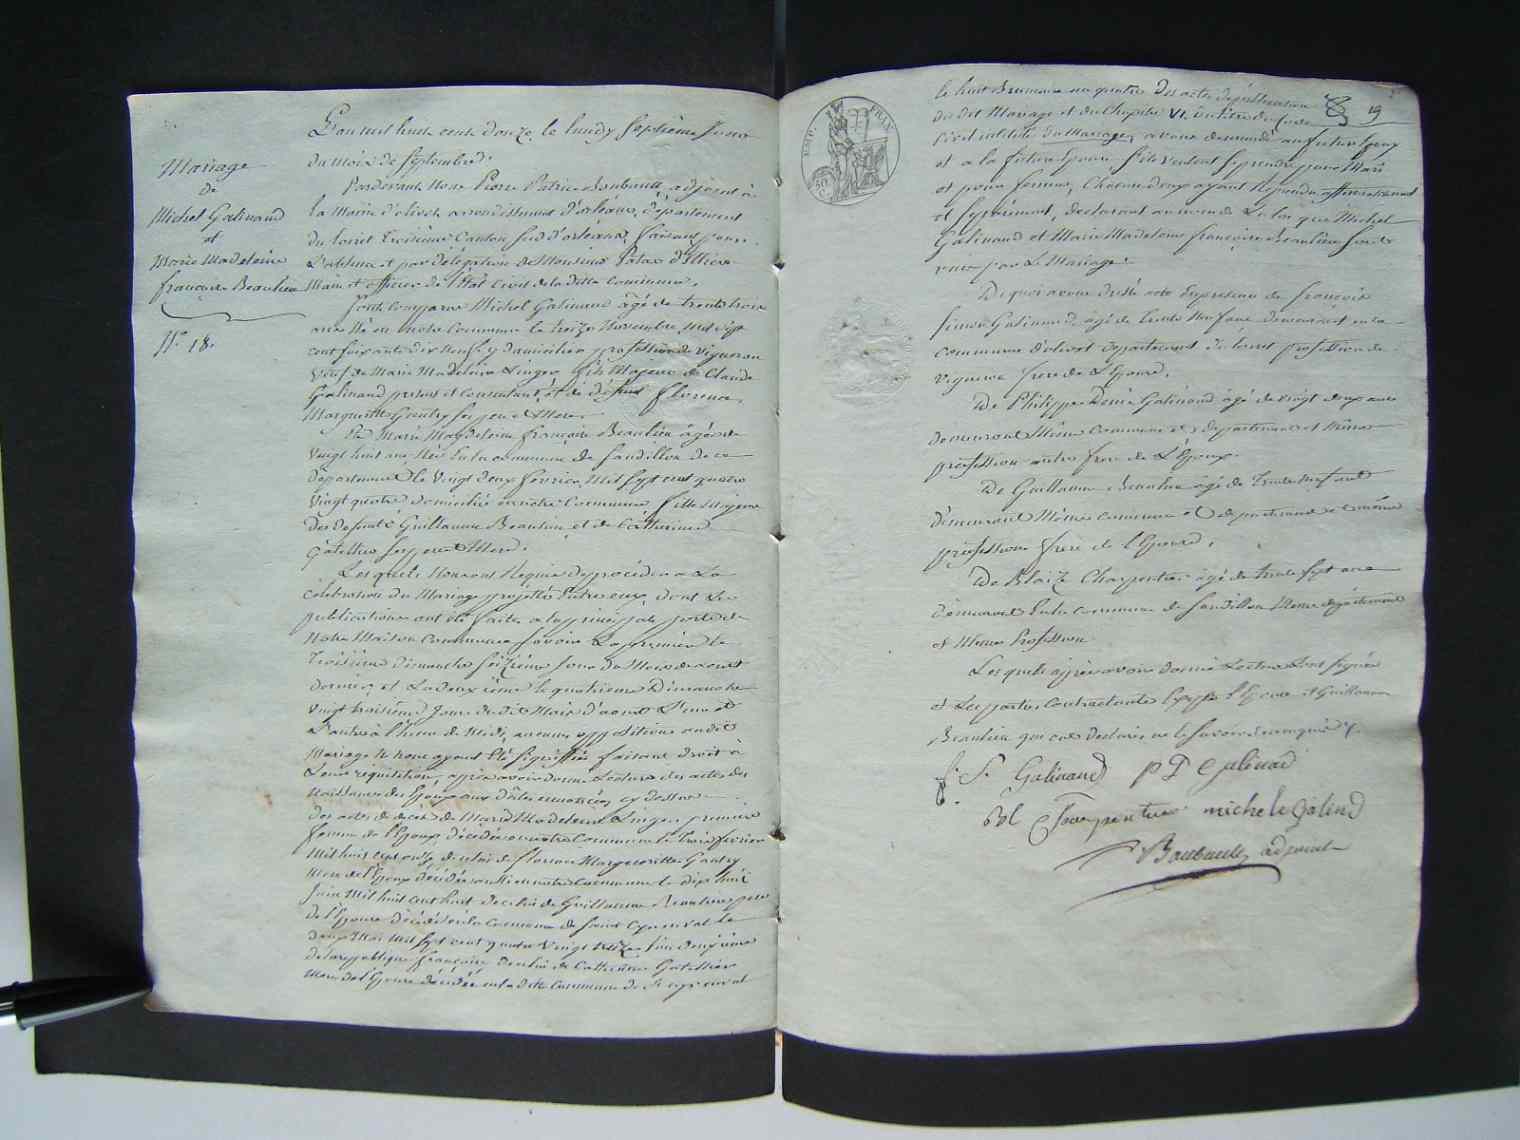 Mariage
de
Michel Galinand
et
Marie Madeleine
françoise Beaulieu
N.o 18.
L'an mil huit cent douze, le lundy septième jour
du mois de septembre.
Pardevant Nous Pierre Patrice Baubault, adjoint à
la Mairie d'olivet arrondissement d'orléans, département
du loiret troisième Canton sud d'orléans, faisant pour
L'absence et par délégation de Monsieur
Maire et officier de l'état Civil de la ditte Commune,
Sont comparus Michel Galinand âgé de trente trois
ans Né en notre Commune le treize Novembre, mil sept
cent soixante dix neuf, y domicilié profession de vigneron
veuf de Marie Madeleine Linger fils Majeur de Claude
Galinand présent et consentant et de défunte florence
Margueritte Gautry ses pere et Mere.
Et Marie Magdeleine françoise Beaulieu âgée de
vingt huit ans Née en la commune de Sandillon de ce
département le vingt deux février, Mil sept cent quatre
vingt quatre domiciliée en notre Commune fille Majeure
des defunts Guillaume Beaulieu et de Catherine
Gatellier ses pere et Mere.
Les quels Nous ont Requis de procéder a La
célébration du Mariage projetté entre eux, dont les
publications ont été faites a la principale porte de
Notre Maison Commune savoir La première le
troisième dimanche seizième jour du Mois d'aoust
dernier, et La deuxième le quatrieme Dimanche
vingt troisième jour du dit Mois d'aoust L'une et
L'autre à l'heure de Midi, aucune opposition audit
Mariage ne nous ayant été signiffiée faisant droit à
Leur réquisition, après avoir donné Lecture des actes de
Naissance des Epoux aux dates enoncées cy dessus
des actes de décès de Marie Madeleine Linger première
femme de l'Epoux décédée en notre Commune le trois février
Mil huit cent onze de celui de florence Margueritte Gautry
Mere de l'Epoux décédée aussi en notre Commune le dix huit
Juin Mil huit cent huit de celui de Guillaume Beaulieu pere
de l'Epouse décédé en la Commune de saint Cyr en val le
deux Mai Mil sept cent quatre vingt treize l'an deuxième
de la republique française de celui de Catherine Gatellier
Mere de l'Epouse décédée en la ditte Commune de St cyr en val
19
EMP. FRAN.
50 C.
le huit Brumaire an quatre des actes de publication
du dit Mariage et du Chapitre VI. du titre du code
Civil intitulé du Mariage, avons demandé au futur Epoux
et a la future Epouse s'ils veulent se prendre pour Mari
et pour femme, Chacun d'eux ayant Répondu affirmativement
et séparément, declarons au nom de La loi que Michel
Galinand et Marie Madeleine françoise Beaulieu sont
unis par Le Mariage.
De quoi avons dressé acte en présence de françois
Simon Galinand, âgé de trente neuf ans demeurant en la
commune d'olivet département du loiret profession de
vigneron frere de L'Epoux.
De Philippe Denis Galinand âgé de vingt deux ans
demeurant Même Commune et departement et Même
profession autre frere de L'Epoux.
De Guillaume Beaulieu âgé de trente neuf ans
demeurant Même commune et departement et même
profession frere de l'Epouse.
De Blaize Charpentier âgé de trente sept ans
demeurant En la commune de Sandillon Même département
et Même Profession
Lesquels après avoir donné Lecture Sont signés
et Les parties Contractantes Excepté l'Epouse et Guillaume
Beaulieu qui ont déclaré ne le savoir de ce enquis.
f. S. Galinand P D Galinan
Bl Charpentier michel Galind
Baubault adjoint